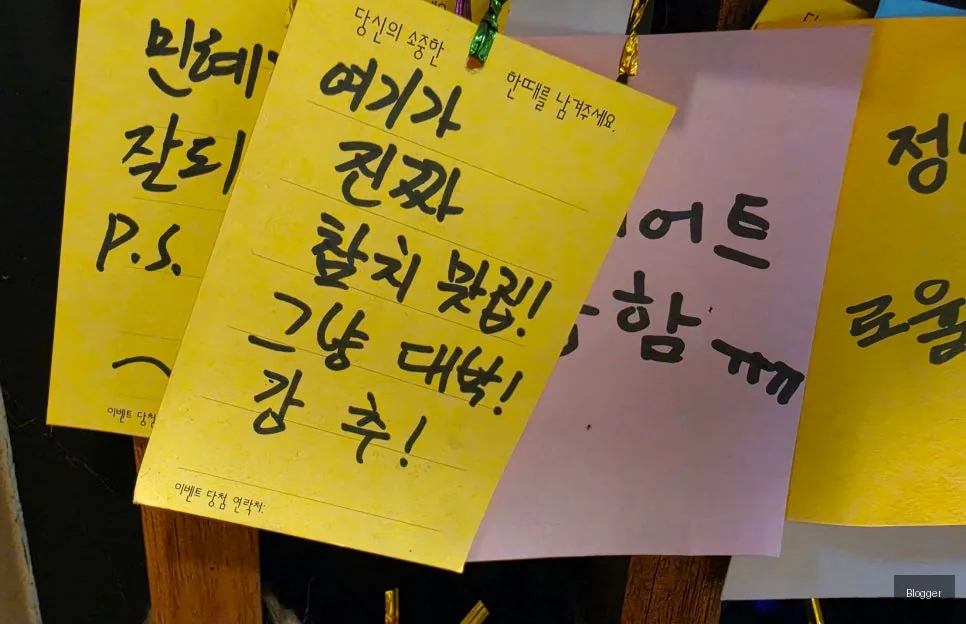 민예
잘되
P.S.
이벤트 당첨
당신의 소중한
한때를 남겨주세요.
여기가
진짜
참치 맛집!
그냥 대박!
강 추!
이벤트 당첨 연락처:
어트
함 ㅠㅠ
정
로울
Blogger